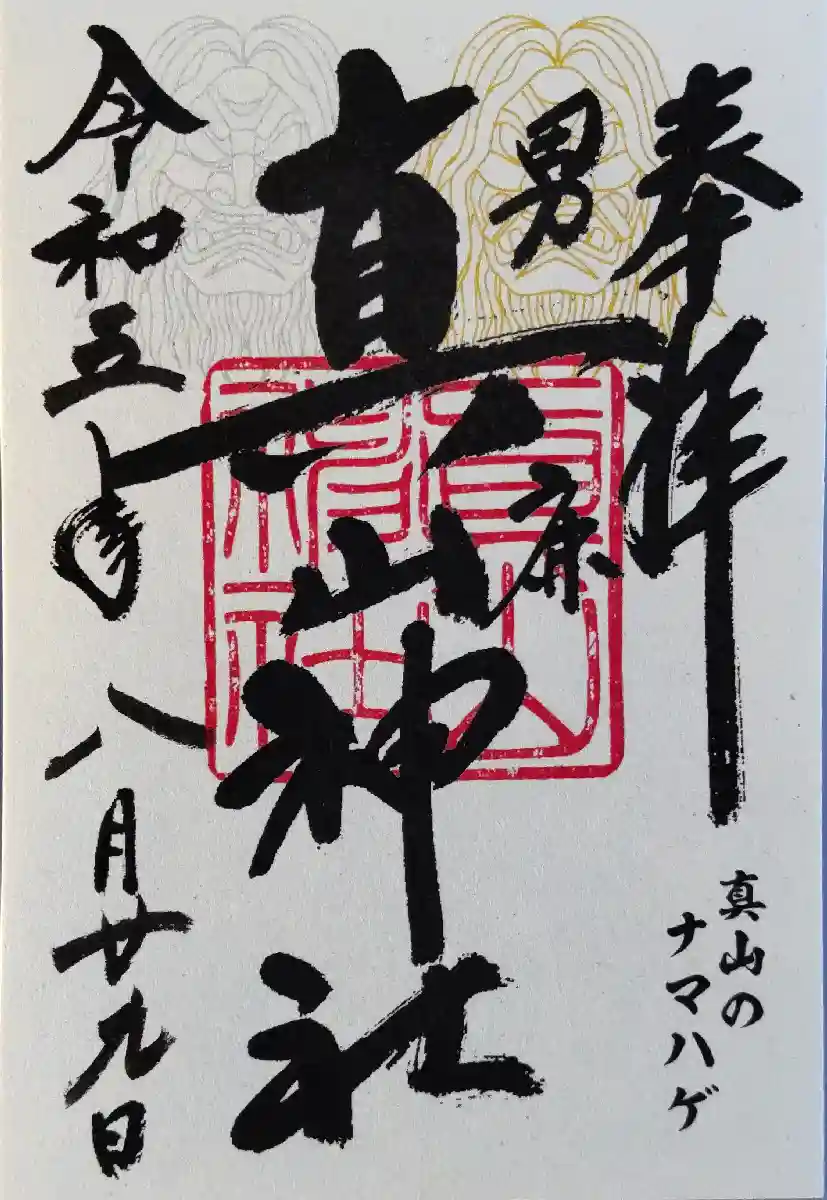 奉拝
男鹿
真山神社
令和五年八月廿九日
真山の
ナマハゲ